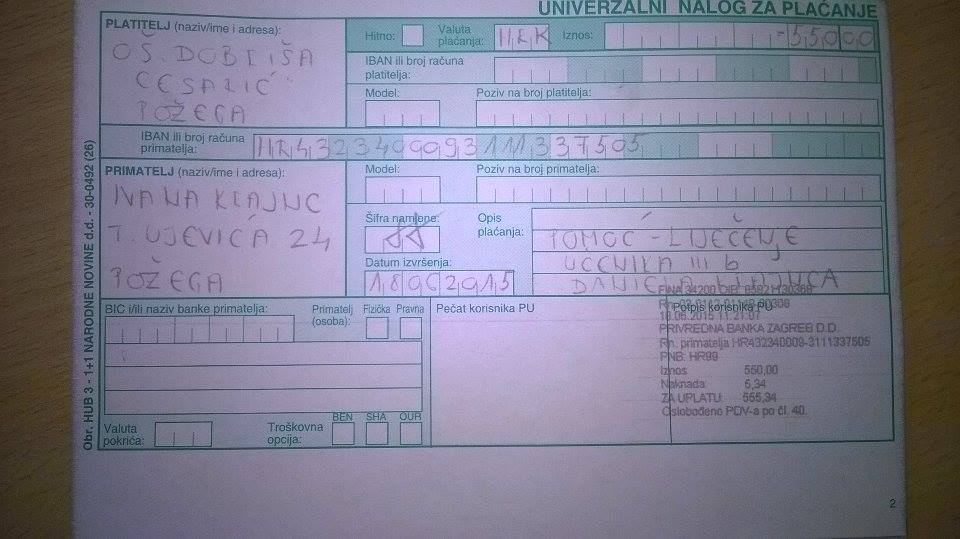 UNIVERZALNI NALOG ZA PLAĆANJE
PLATITELJ (naziv/ime i adresa):
OŠ. DOBRIŠA
CESARIĆ
POŽEGA
Hitno:
Valuta plaćanja:
HRK
Iznos:
=55000
IBAN ili broj računa platitelja:
Model:
Poziv na broj platitelja:
IBAN ili broj računa primatelja:
HR4323400093111337505
PRIMATELJ (naziv/ime i adresa):
IVANA KLAJNC
T. UJEVIĆA 24
POŽEGA
Model:
Poziv na broj primatelja:
Šifra namjene:
Opis plaćanja:
POMOĆ - LIJEČENJE
UČENIKA III b
DANIELA KLAJNCA
Datum izvršenja:
18062015
BIC i/ili naziv banke primatelja:
Primatelj (osoba):
Fizička
Pravna
Pečat korisnika PU
Potpis korisnika PU
FINA 34200
18.06.2015 11:21:07
PRIVREDNA BANKA ZAGREB D.D.
Rn. primatelja HR432340009-3111337505
PNB: HR99
Iznos 550,00
Naknada: 5,34
ZA UPLATU: 555,34
Oslobođeno PDV-a po čl. 40.
Valuta pokrića:
Troškovna opcija:
BEN
SHA
OUR
Obr. HUB 3 - 1+1 NARODNE NOVINE d.d. - 30-0492 (26)
2